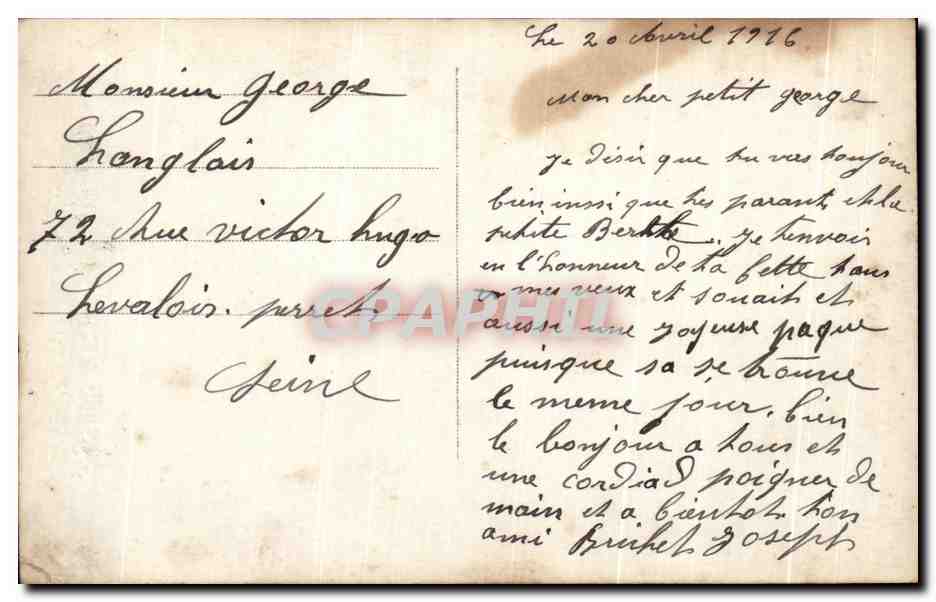 Monsieur George
Langlais
72 Rue victor hugo
Levalois. perret
Seine
Le 20 Avril 1916
Mon cher petit george
Je désir que tu vas toujour
bien inssi que tes parant et la
petite Berthe.. Je tenvois
en l'honneur de ta fette tous
mes veux et souait et
aussi une Joyeuse paque
puisque sa se trouve
le meme jour. bien
le bonjour a tous et
une cordial poigner de
main et a bientot ton
ami Bruhet Joseph
CPAPHIL